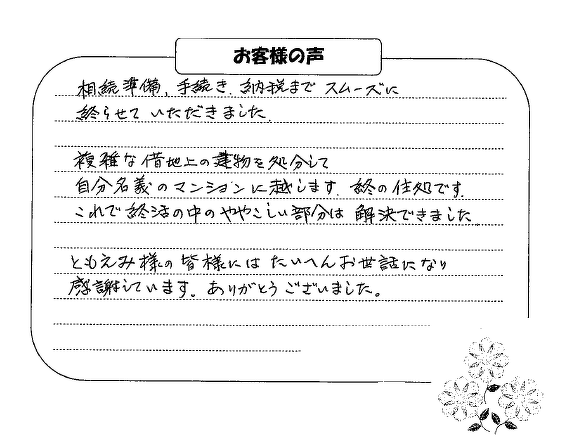 お客様の声
相続準備、手続き、納税まで スムーズに
終らせて いただきました。
複雑な借地上の建物を処分して
自分名義のマンションに越します。終の住処です。
これで終活の中のややこしい部分は 解決できました
ともえみ様の皆様には たいへんお世話になり
感謝しています。ありがとうございました。